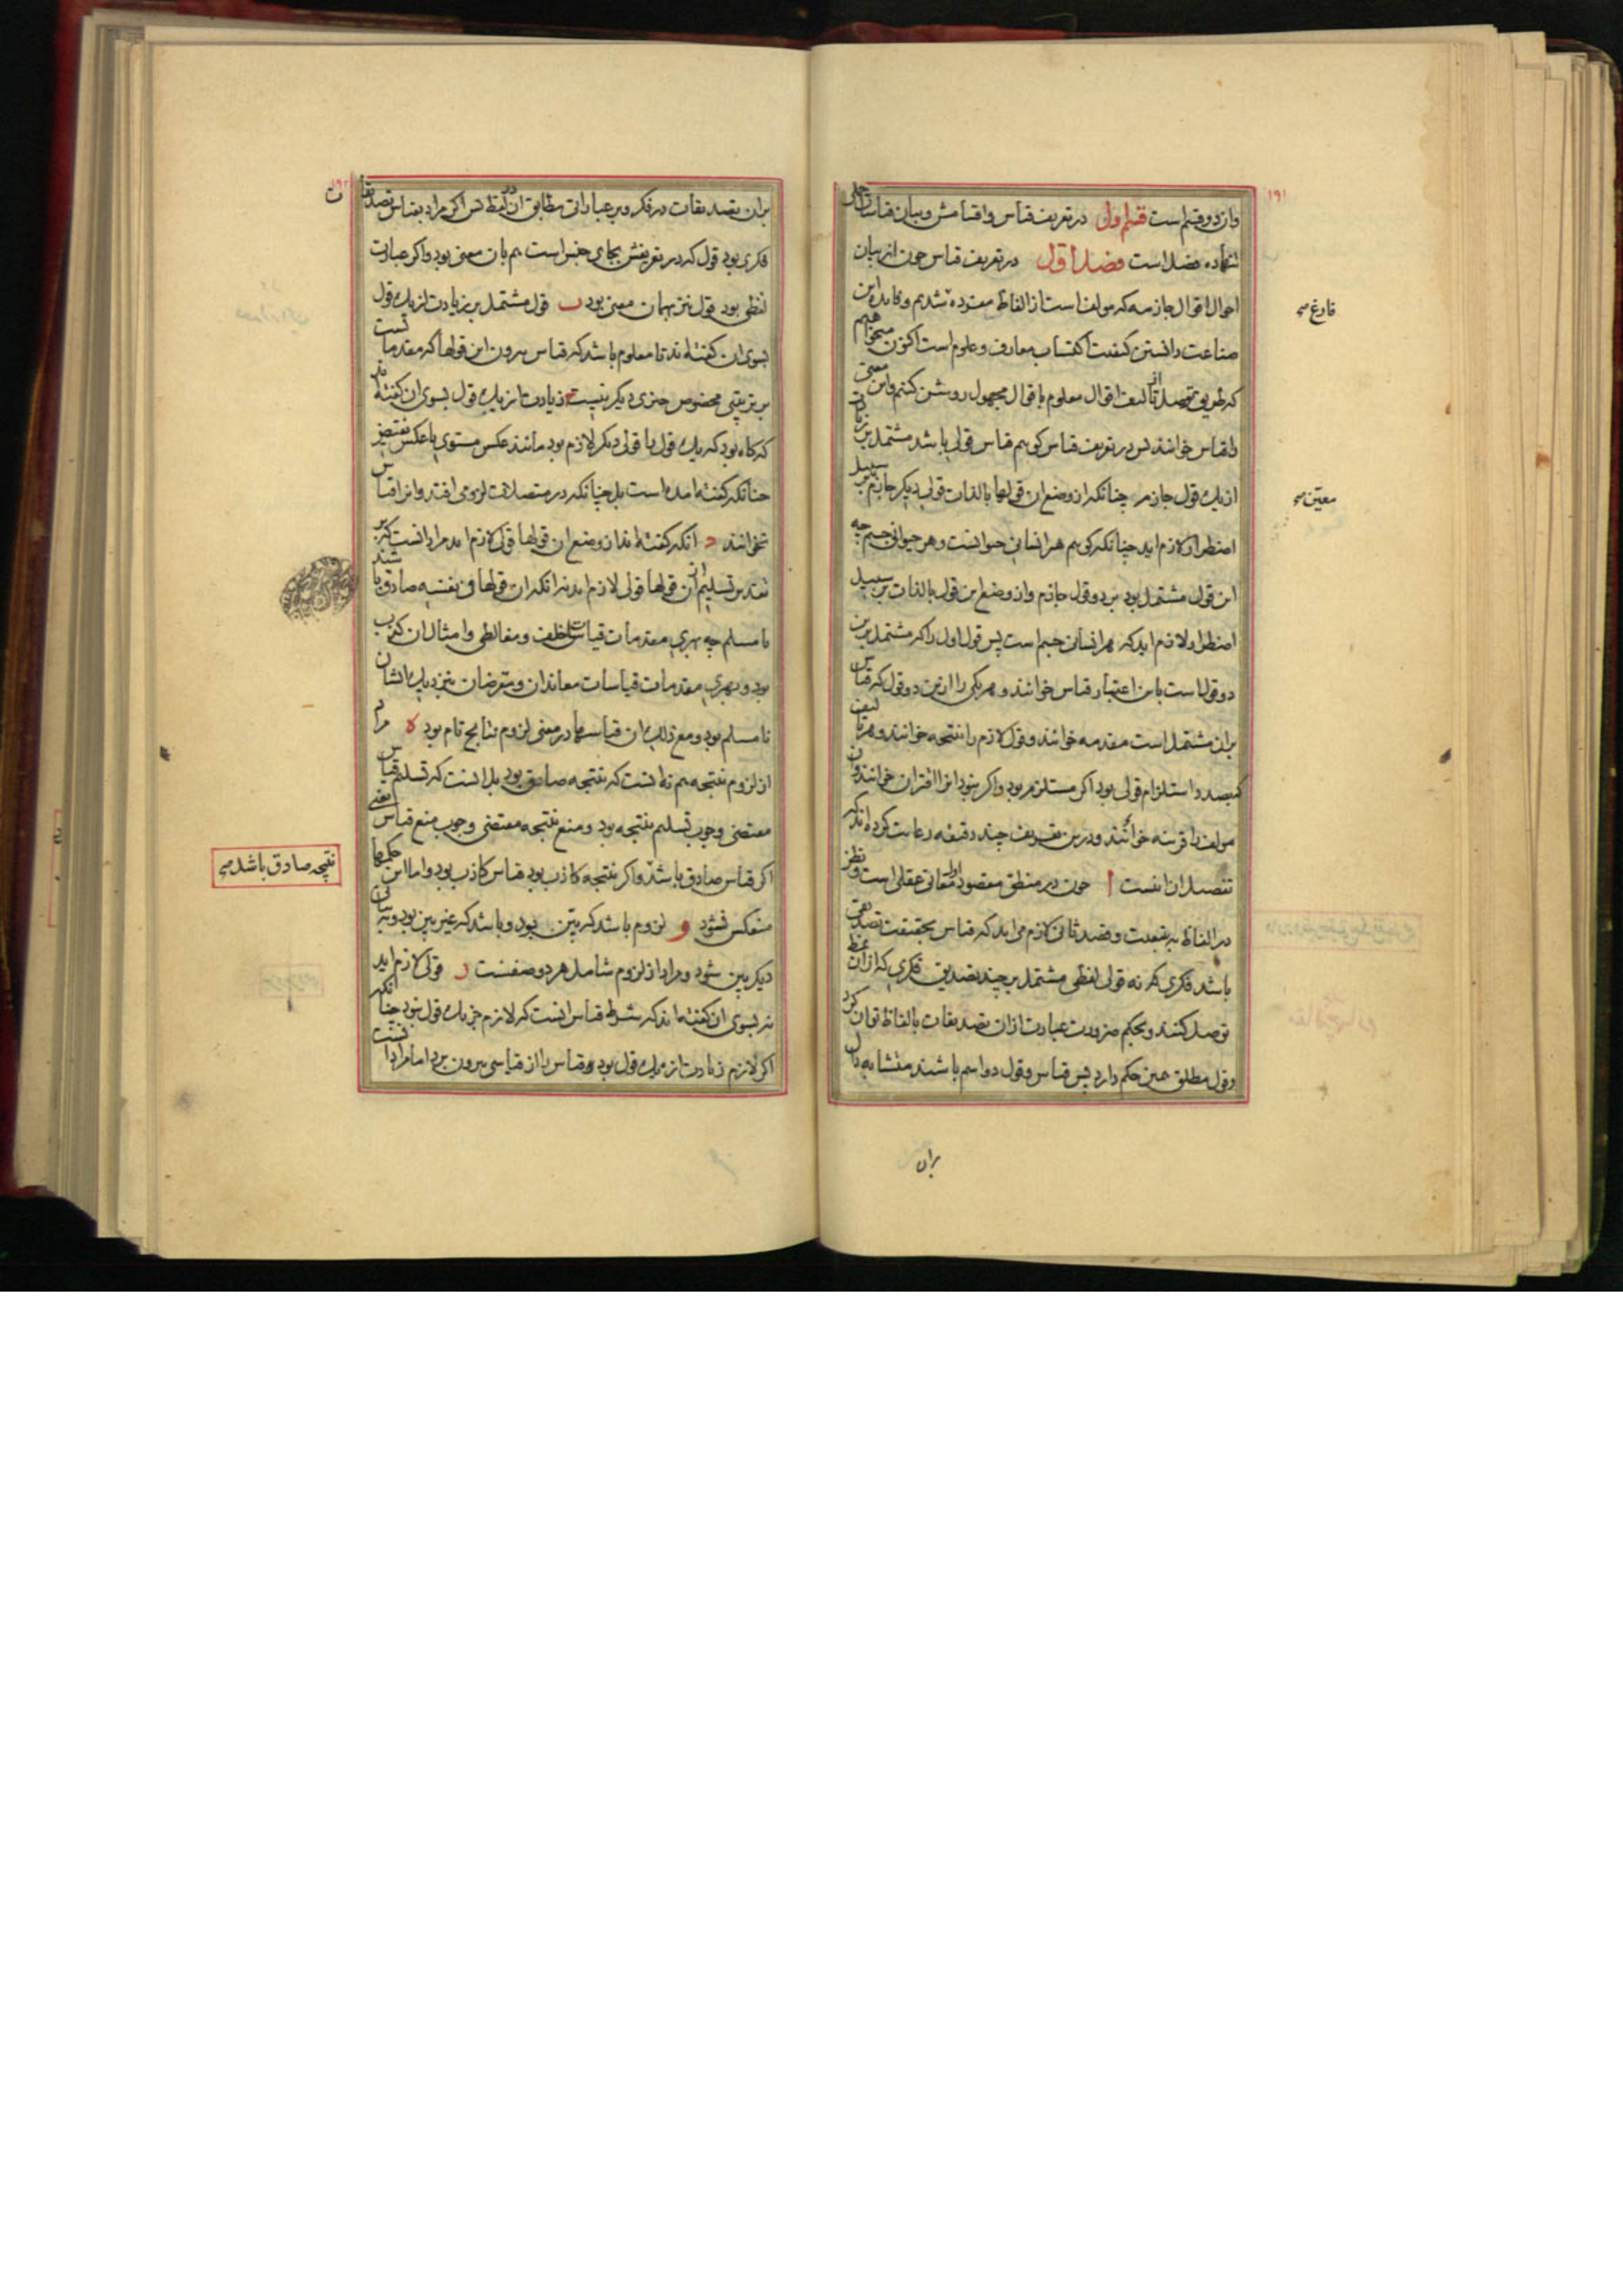 ۱۹۱
وان دو قسم است قسم اول در تعریف قیاس و اقسامش و بیان قیاسات حملی
شانزده فصل است فصل اول در تعریف قیاس چون از بیان
احوال اقوال جازمه که مولف است از الفاظ مفرده شدیم و فایده این
فارغ صح
صناعت دانستن کیفیت اکتساب معارف و علوم است اکنون میخواهیم
که طریق تحصیل از تالیف اقوال معلوم باقوال مجهول روشن کنیم و این معنی
را قیاس خوانند پس در تعریف قیاس کوییم قیاس قولی باشد مشتمل بر زیادت
از یک قول جازم چنانکه از وضع ان قولها بالذات قولی دیکر جازم بر سبیل
معیّن صح
اضطرار لازم اید چنانکه کوییم هر انسانی حیوانست و هر حیوانی جسم چه
این قول مشتمل بود بر دو قول جازم و از وضع این قول بالذات بر سبیل
اضطرار لازم اید که هر انسانی جسم است پس قول اول را که مشتمل برین
دو قول است باین اعتبار قیاس خوانند و هر یکی را ازین دو قول که قیاس
بران مشتمل است مقدمه خوانند و قول لازم را نتیجه خوانند و هر تالیف
که بصدد استلزام قولی بود اکر مستلزم بود و اکر نبود انرا اقتران خوانند و ان
مولف را قرینه خوانند و درین تعریف چند دقیقه رعایت کرده اند که
تفصیل ان اینست ا چون در منطق مقصود اولا معانی عقلی است و نظر
در الفاظ به تبعیت و قصد ثانی لازم می اید که قیاس بحقیقت تصدیقی
باشد فکری که نه قولی لفظی مشتمل بر چند تصدیق فکری که ازان
توصل کنند و بحکم ضرورت عبارت ازان تصدیقات بالفاظ توان کرد
و قول مطلق همین حکم دارد پس قیاس و قول دو اسم باشند متشابه دال
بران
۱۹۲
بران تصدیقات در فکر و بر عباراتی مطابق ان در لفظ پس اکر مراد بقیاس تصدیقات
فکری بود قول که در تعریفش بجای جنس است هم بان معنی بود و اکر عبارت
لفظی بود قول نیز بهمان معنی بود ب قول مشتمل بر زیادت از یک قول
بسوی ان کفته اند تا معلوم باشد که قیاس بیرون این قولها که مقدماتست
بر ترتیبی مخصوص چیزی دیکر نیست ج زیادت از یک قول بسوی ان کفته اند
که کاه بود که یک قول را قولی دیکر لازم بود مانند عکس مستوی یا عکس نقیض
چنانکه کفته امده است بل چنانکه در متصلات لزومی افتد و انرا قیاس
نخوانند د انکه کفته اند از وضع ان قولها قولی لازم اید مراد انست که بر
تقدیر تسلیم ان قولها قولی لازم اید نه انکه ان قولها فی نفسه صادق باشند
یا مسلم چه بهری مقدمات قیاسات خلف و مغالطی و امثال ان کاذب
بود و بهری مقدمات قیاسات معاندان و متعرضان نیز نزدیک ایشان
نا مسلم بود و مع ذلک ان قیاسها در معنی لزوم نتایج تام بود ه مراد
از لزوم نتیجه هم نه انست که نتیجه صادق بود بل انست که تسلیم قیاس
مقتضی وجوب تسلیم نتیجه بود و منع نتیجه مقتضی وجوب منع قیاس یعنی
اکر قیاس صادق باشد و اکر نتیجه کاذب بود قیاس کاذب بود و اما این حکمها
نتیجه صادق باشد صح
منعکس نشود و لزوم باشد که بیّن بود و باشد که غیر بین بود و به بیانی
دیکر بین شود و مراد از لزوم شامل هر دو صنفست ز قولی لازم اید
نه بسوی ان کفته اند که شرط قیاس انست که لازم جز یک قول نبود چنانکه
اکر لازم زیادت از یک قول بود قیاس را از قیاسی بیرون برد اما مراد انست